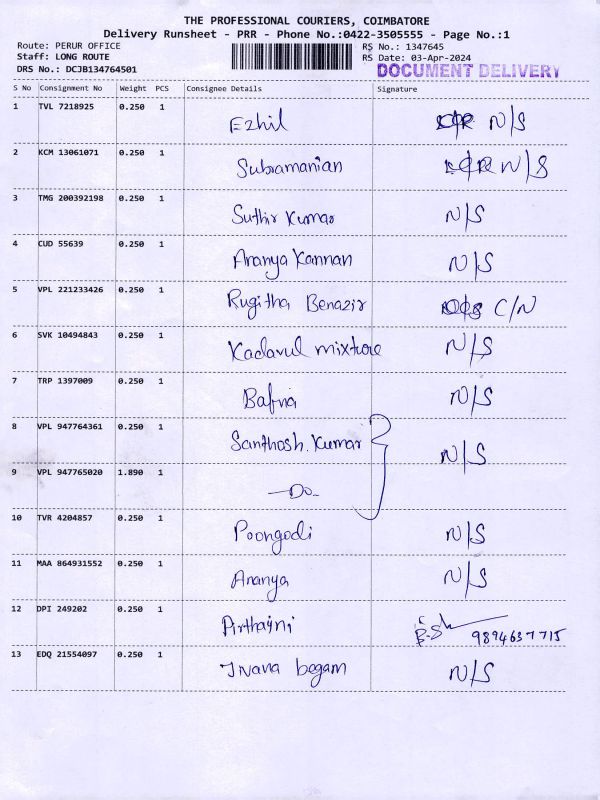 THE PROFESSIONAL COURIERS, COIMBATORE
Delivery Runsheet - PRR - Phone No.:0422-3505555 - Page No.:1
Route: PERUR OFFICE RS No.: 1347645
Staff: LONG ROUTE RS Date: 03-Apr-2024
DRS No.: DCJB134764501 DOCUMENT DELIVERY
S No Consignment No Weight PCS Consignee Details Signature
1 TVL 7218925 0.250 1 Ezhil N/S
2 KCM 13061071 0.250 1 Subramanian N/S
3 TMG 200392198 0.250 1 Suthir Kumar N/S
4 CUD 55639 0.250 1 Ananya Kannan N/S
5 VPL 221233426 0.250 1 Rugitha Benazir C/N
6 SVK 10494843 0.250 1 Kadavul mixture N/S
7 TRP 1397009 0.250 1 Bafna N/S
8 VPL 947764361 0.250 1 Santhosh. Kumar N/S
9 VPL 947765020 1.890 1 —Do—
10 TVR 4204857 0.250 1 Poongodi N/S
11 MAA 864931552 0.250 1 Ananya N/S
12 DPI 249202 0.250 1 9894637715
13 EDQ 21554097 0.250 1 begam N/S